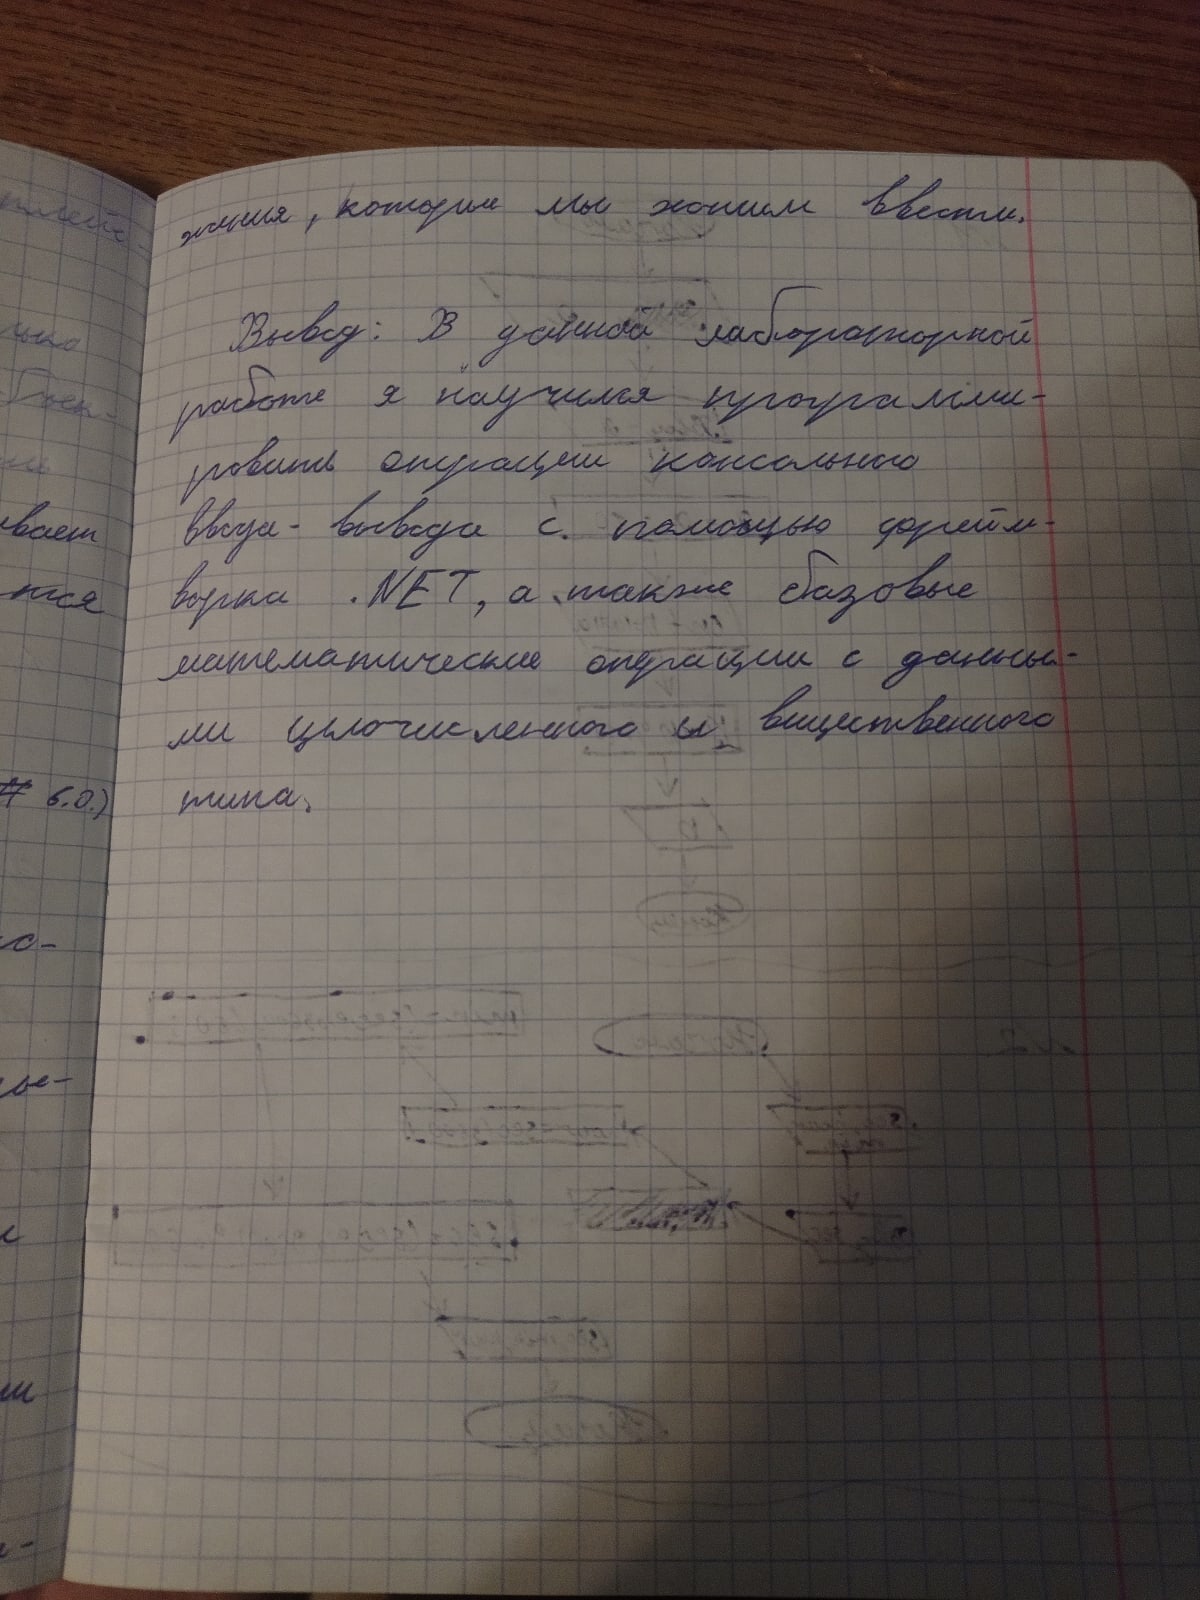 жения, которые мы хотим ввести.
Вывод: В данной лабораторной
работе я научился программи-
ровать операции консольного
ввода-вывода с помощью фрейм-
ворка .NET, а также базовые
математические операции с данны-
ми целочисленного и вещественного
типа.
вает
тся
# 6.0.)